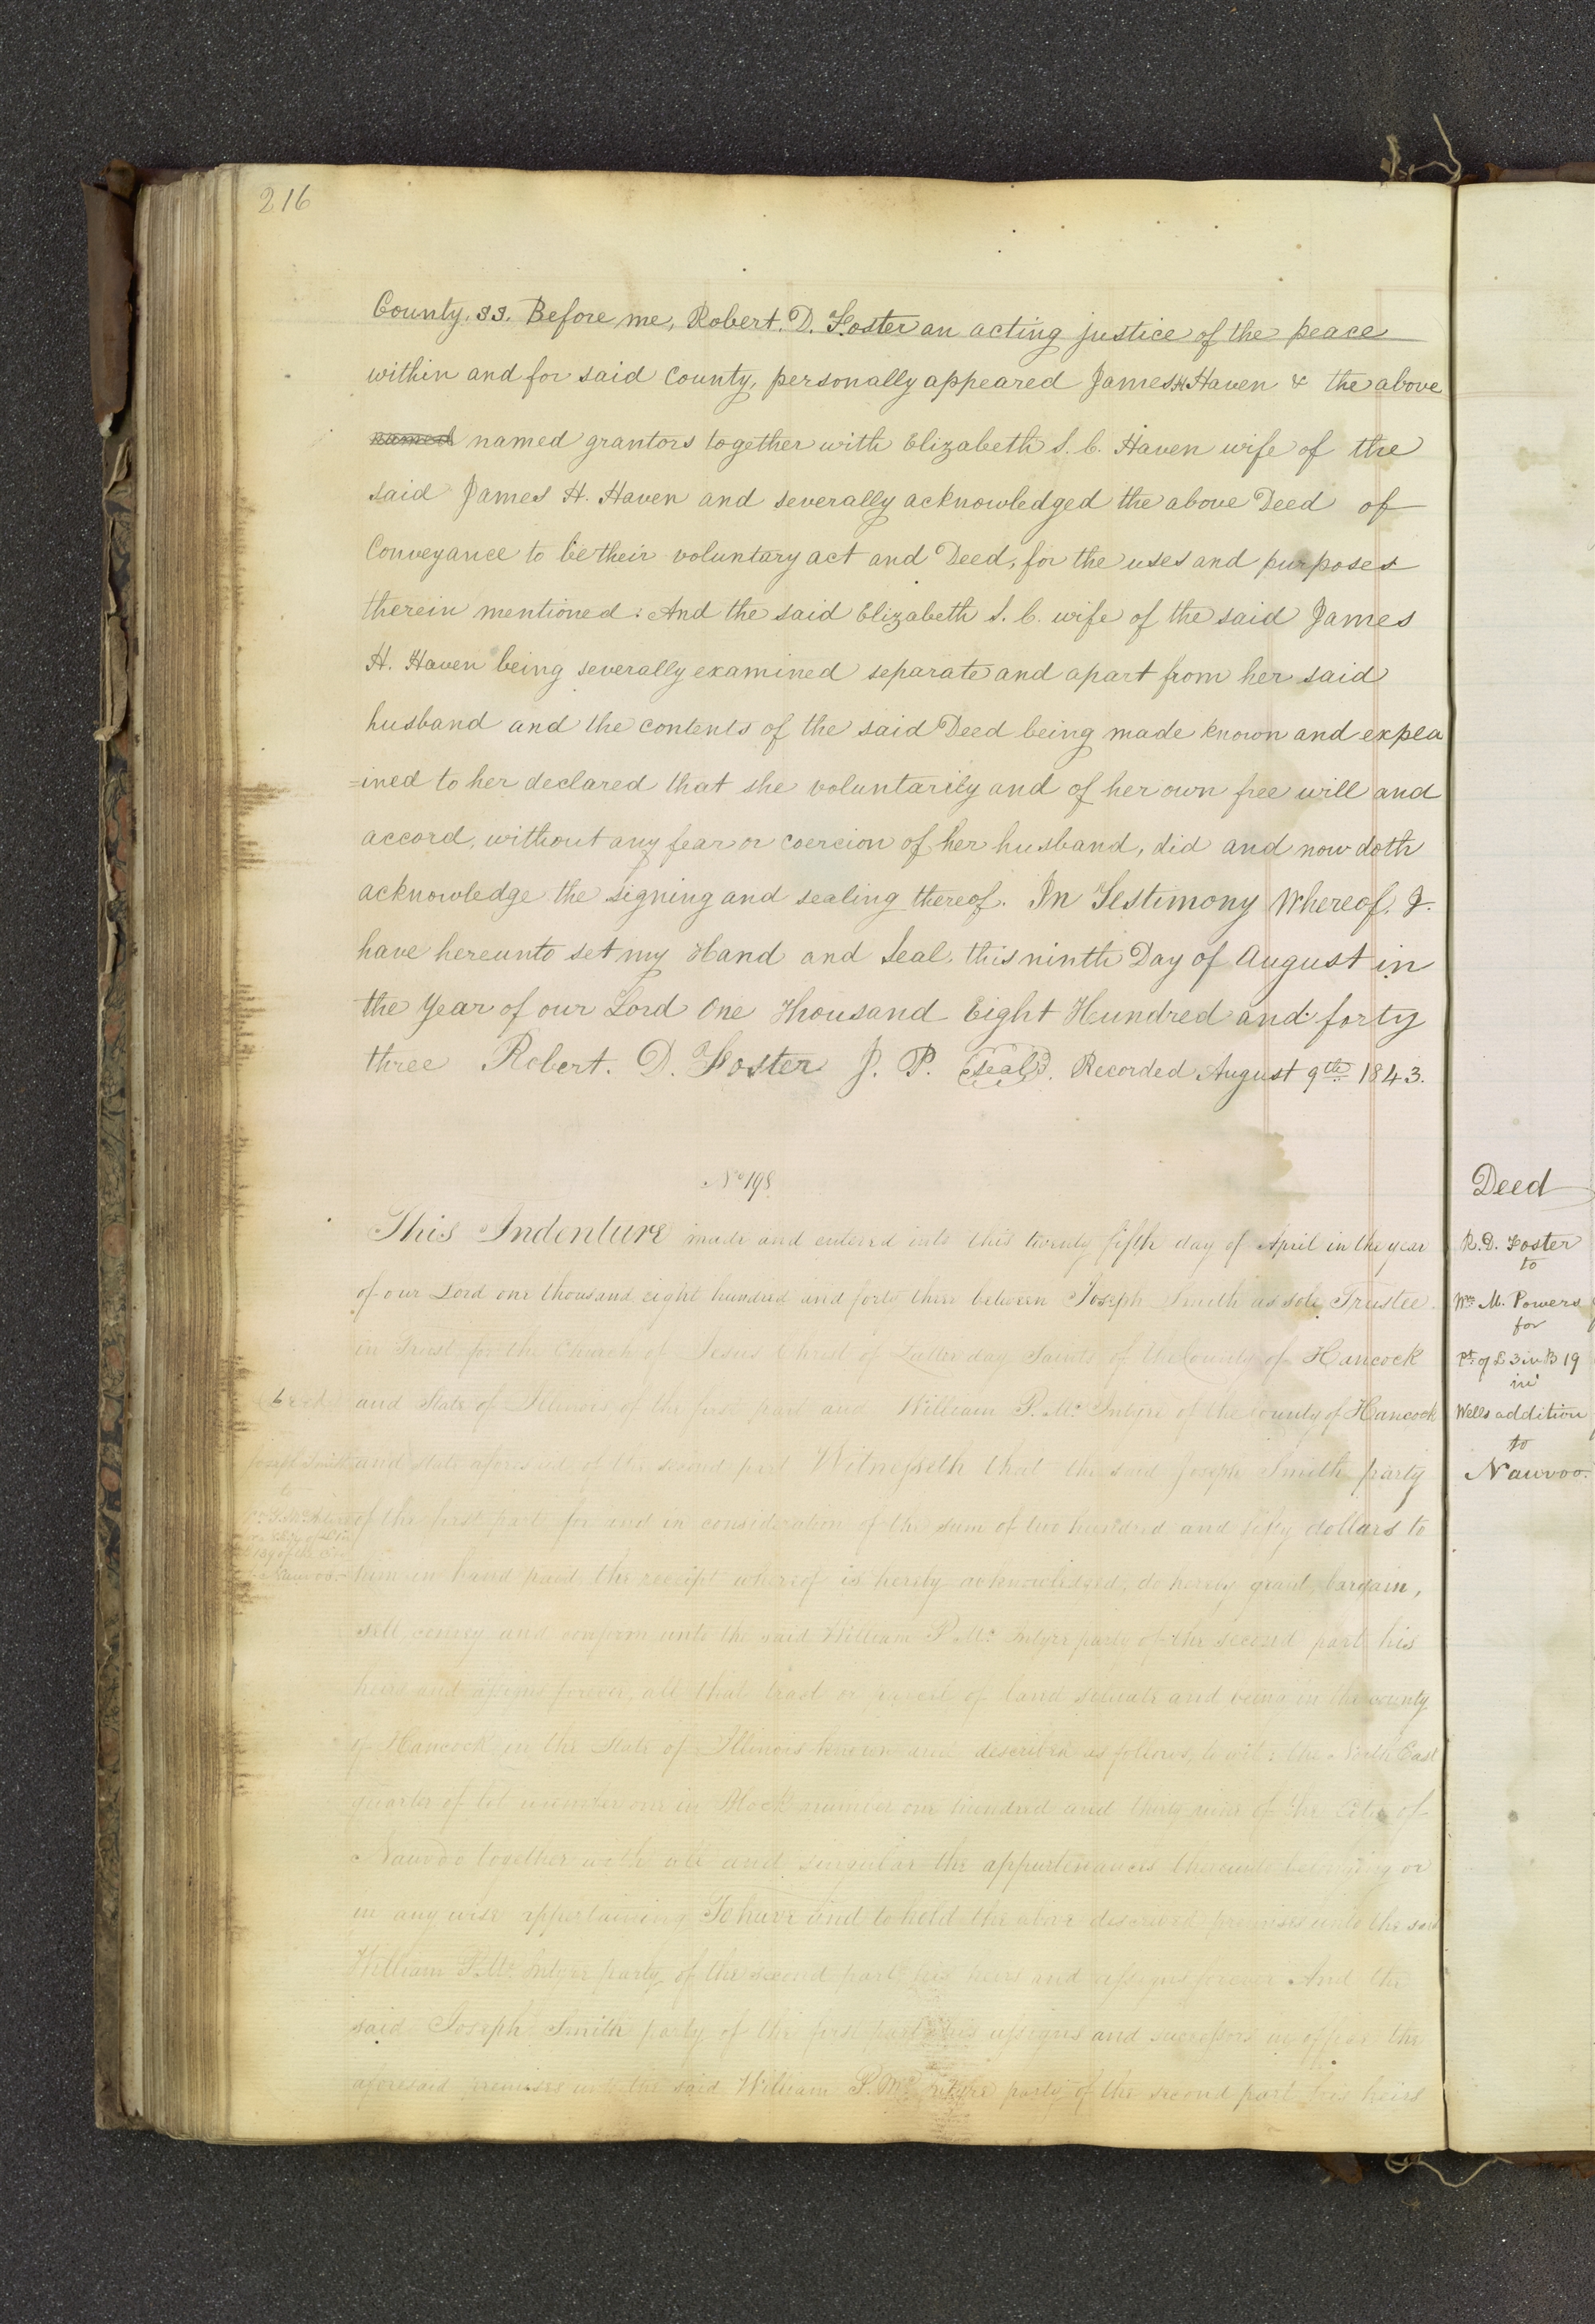 216
County. SS. Before me, Robert. D. Foster an acting justice of the peace
within and for said County, personally appeared James H Haven & the above
named named grantors together with Elizabeth S. C. Haven wife of the
said James H. Haven and severally acknowledged the above Deed of
Conveyance to be their voluntary act and Deed, for the uses and purposes
therein mentioned: And the said Elizabeth S. C. wife of the said James
H. Haven being severally examined separate and apart from her said
husband and the contents of the said Deed being made known and expla
=ined to her declared that she voluntarily and of her own free will and
accord, without any fear or coercion of her husband, did and now doth
acknowledge the signing and sealing thereof. In Testimony Whereof, I.
have hereunto set my Hand and Seal, this ninth Day of August in
the Year of our Lord One Thousand Eight Hundred and forty
three Robert. D. Foster J. P. Seal. Recorded August 9th 1843.
No 198
This Indenture made and entered into this twenty fifth day of April in the year
of our Lord one thousand eight hundred and forty three between Joseph Smith as sole Trustee
in Trust for the Church of Jesus Christ of Latter day Saints of the County of Hancock
and State of Illinois of the first part and William P. Mc Intyre of the County of Hancock
and state aforesaid of the second part Witnesseth that the said Joseph Smith party
of the first part for and in consideration of the sum of two hundred and fifty dollars to
him in hand paid the receipt whereof is hereby acknowledged, do hereby grant, bargain,
sell, convey and confirm unto the said William P Mc Intyre party of the second part his
heirs and assigns forever, all that tract or parcel of land situate and being in the county
of Hancock in the State of Illinois known and described as follows, to wit: the North East
quarter of lot number one in Block number one hundred and thirty nine of the City of
Nauvoo together with all and singular the appurtenances thereunto belonging or
in any wise appertaining To have and to hold the above described premises unto the said
William P. Mc Intyre party of the second part his heirs and assigns forever And the
said Joseph Smith party of the first part his assigns and successors in office the
aforesaid premises unto the said William P. Mc Intyre party of the second part his heirs
Deed
Joseph Smith
to
Nauvoo
Deed
R. D. Foster
to
Wm M. Powers
for
Pt of L 3 in B 19
in
Wells addition
to
Nauvoo.